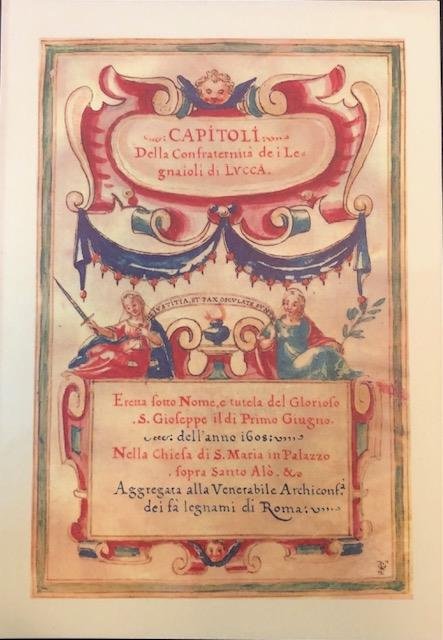 CAPITOLI
Della Confraternità de i Le=
gnaioli di LVCCA.
IVSTITIA, ET PAX OSCVLATE SVNT
Eretta sotto Nome, e tutela del Glorioso
.S. Gioseppe il dì Primo Giugno.
dell'anno 1608:
Nella Chiesa di S. Maria in Palazzo
sopra Santo Alò. &c
Aggregata alla Venerabile Archiconf.ᵃ
dei fà legnami di Roma: